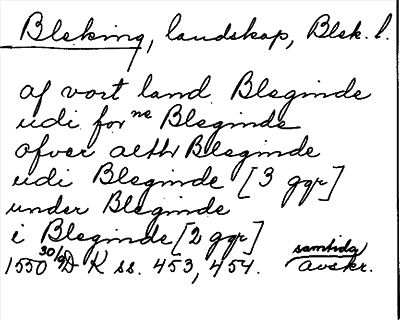 Bleking, landskap, Blek. l.
af vort land Bleginde
udi for^ne Bleginde
ofver alth Bleginde
udi Bleginde [3 ggr]
under Bleginde
i Bleginde [2 ggr]
1550 30/9 D K ss. 453, 454. samtida avskr.